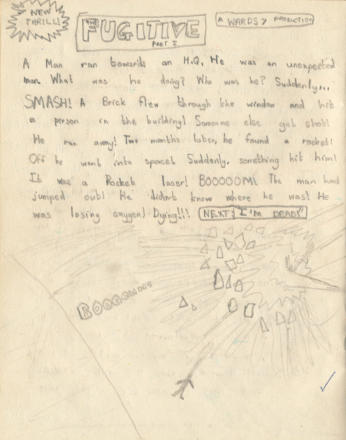 NEW
THRILL!
THE
FUGITIVE
PART I
A WARDSY PRODUCTION
A Man ran towards an H.Q. He was an unexpected
man. What was he doing? Who was he? Suddenly...
SMASH! A Brick flew through the window and hit
a person in the building! Someone else got shot!
He ran away! Two months later, he found a rocket!
Off he went into space! Suddenly, something hit him!
It was a Rocket laser! BOOOOOM! The man had
jumped out! He didnt know where he was! He
was losing oxygen! Dying!!!
NEXT: I'M DEAD!